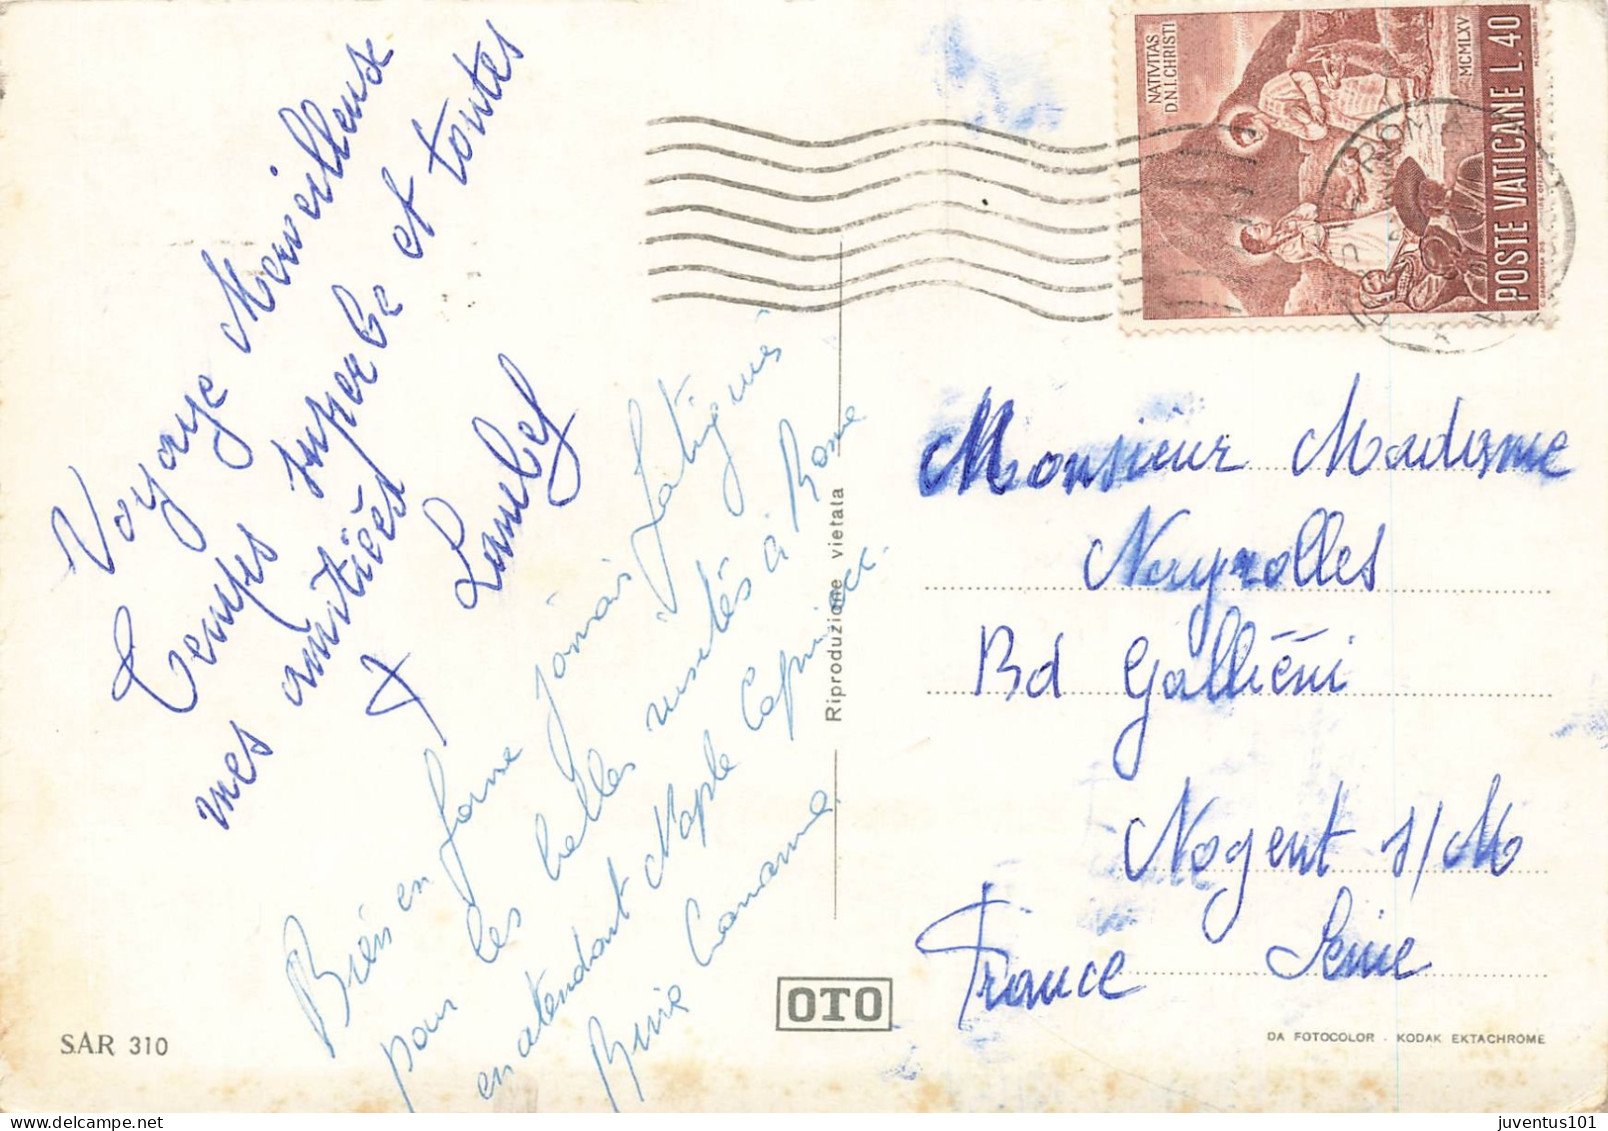 Voyage Merveilleux
Temps superbe et toutes
mes amitiés
Bien en forme jamais fatigués
pour les belles musées à Rome
en attendant Naple Capri ect.
NATIVITAS
D.N.I.CHRISTI
MCMLXV
POSTE VATICANE L.40
ROMA
Riproduzione vietata
Monsieur Madame
Nayrolles
Bd Galliéni
Nogent s/M
France Seine
OTO
SAR 310
DA FOTOCOLOR - KODAK EKTACHROME
juventus101